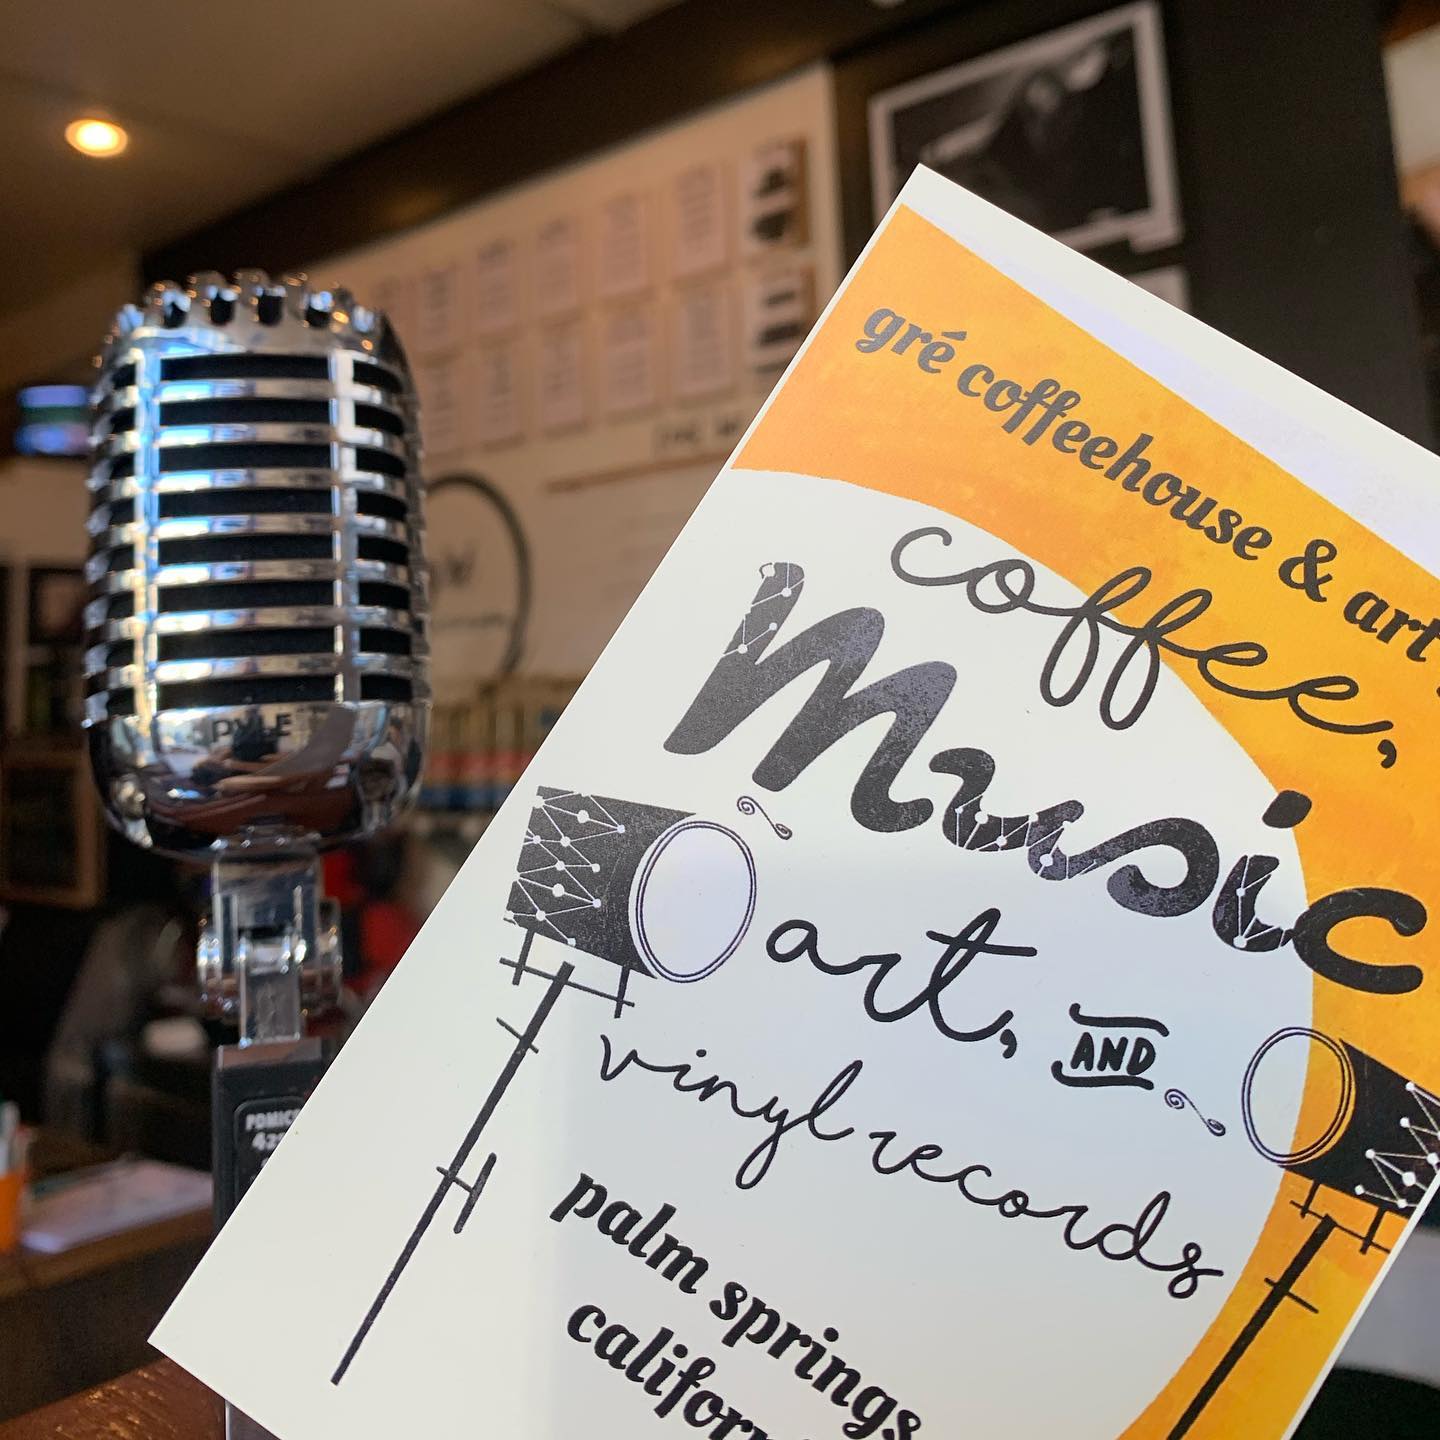 gré coffeehouse & art
coffee,
music
art, AND
vinyl records
palm springs
PYLE